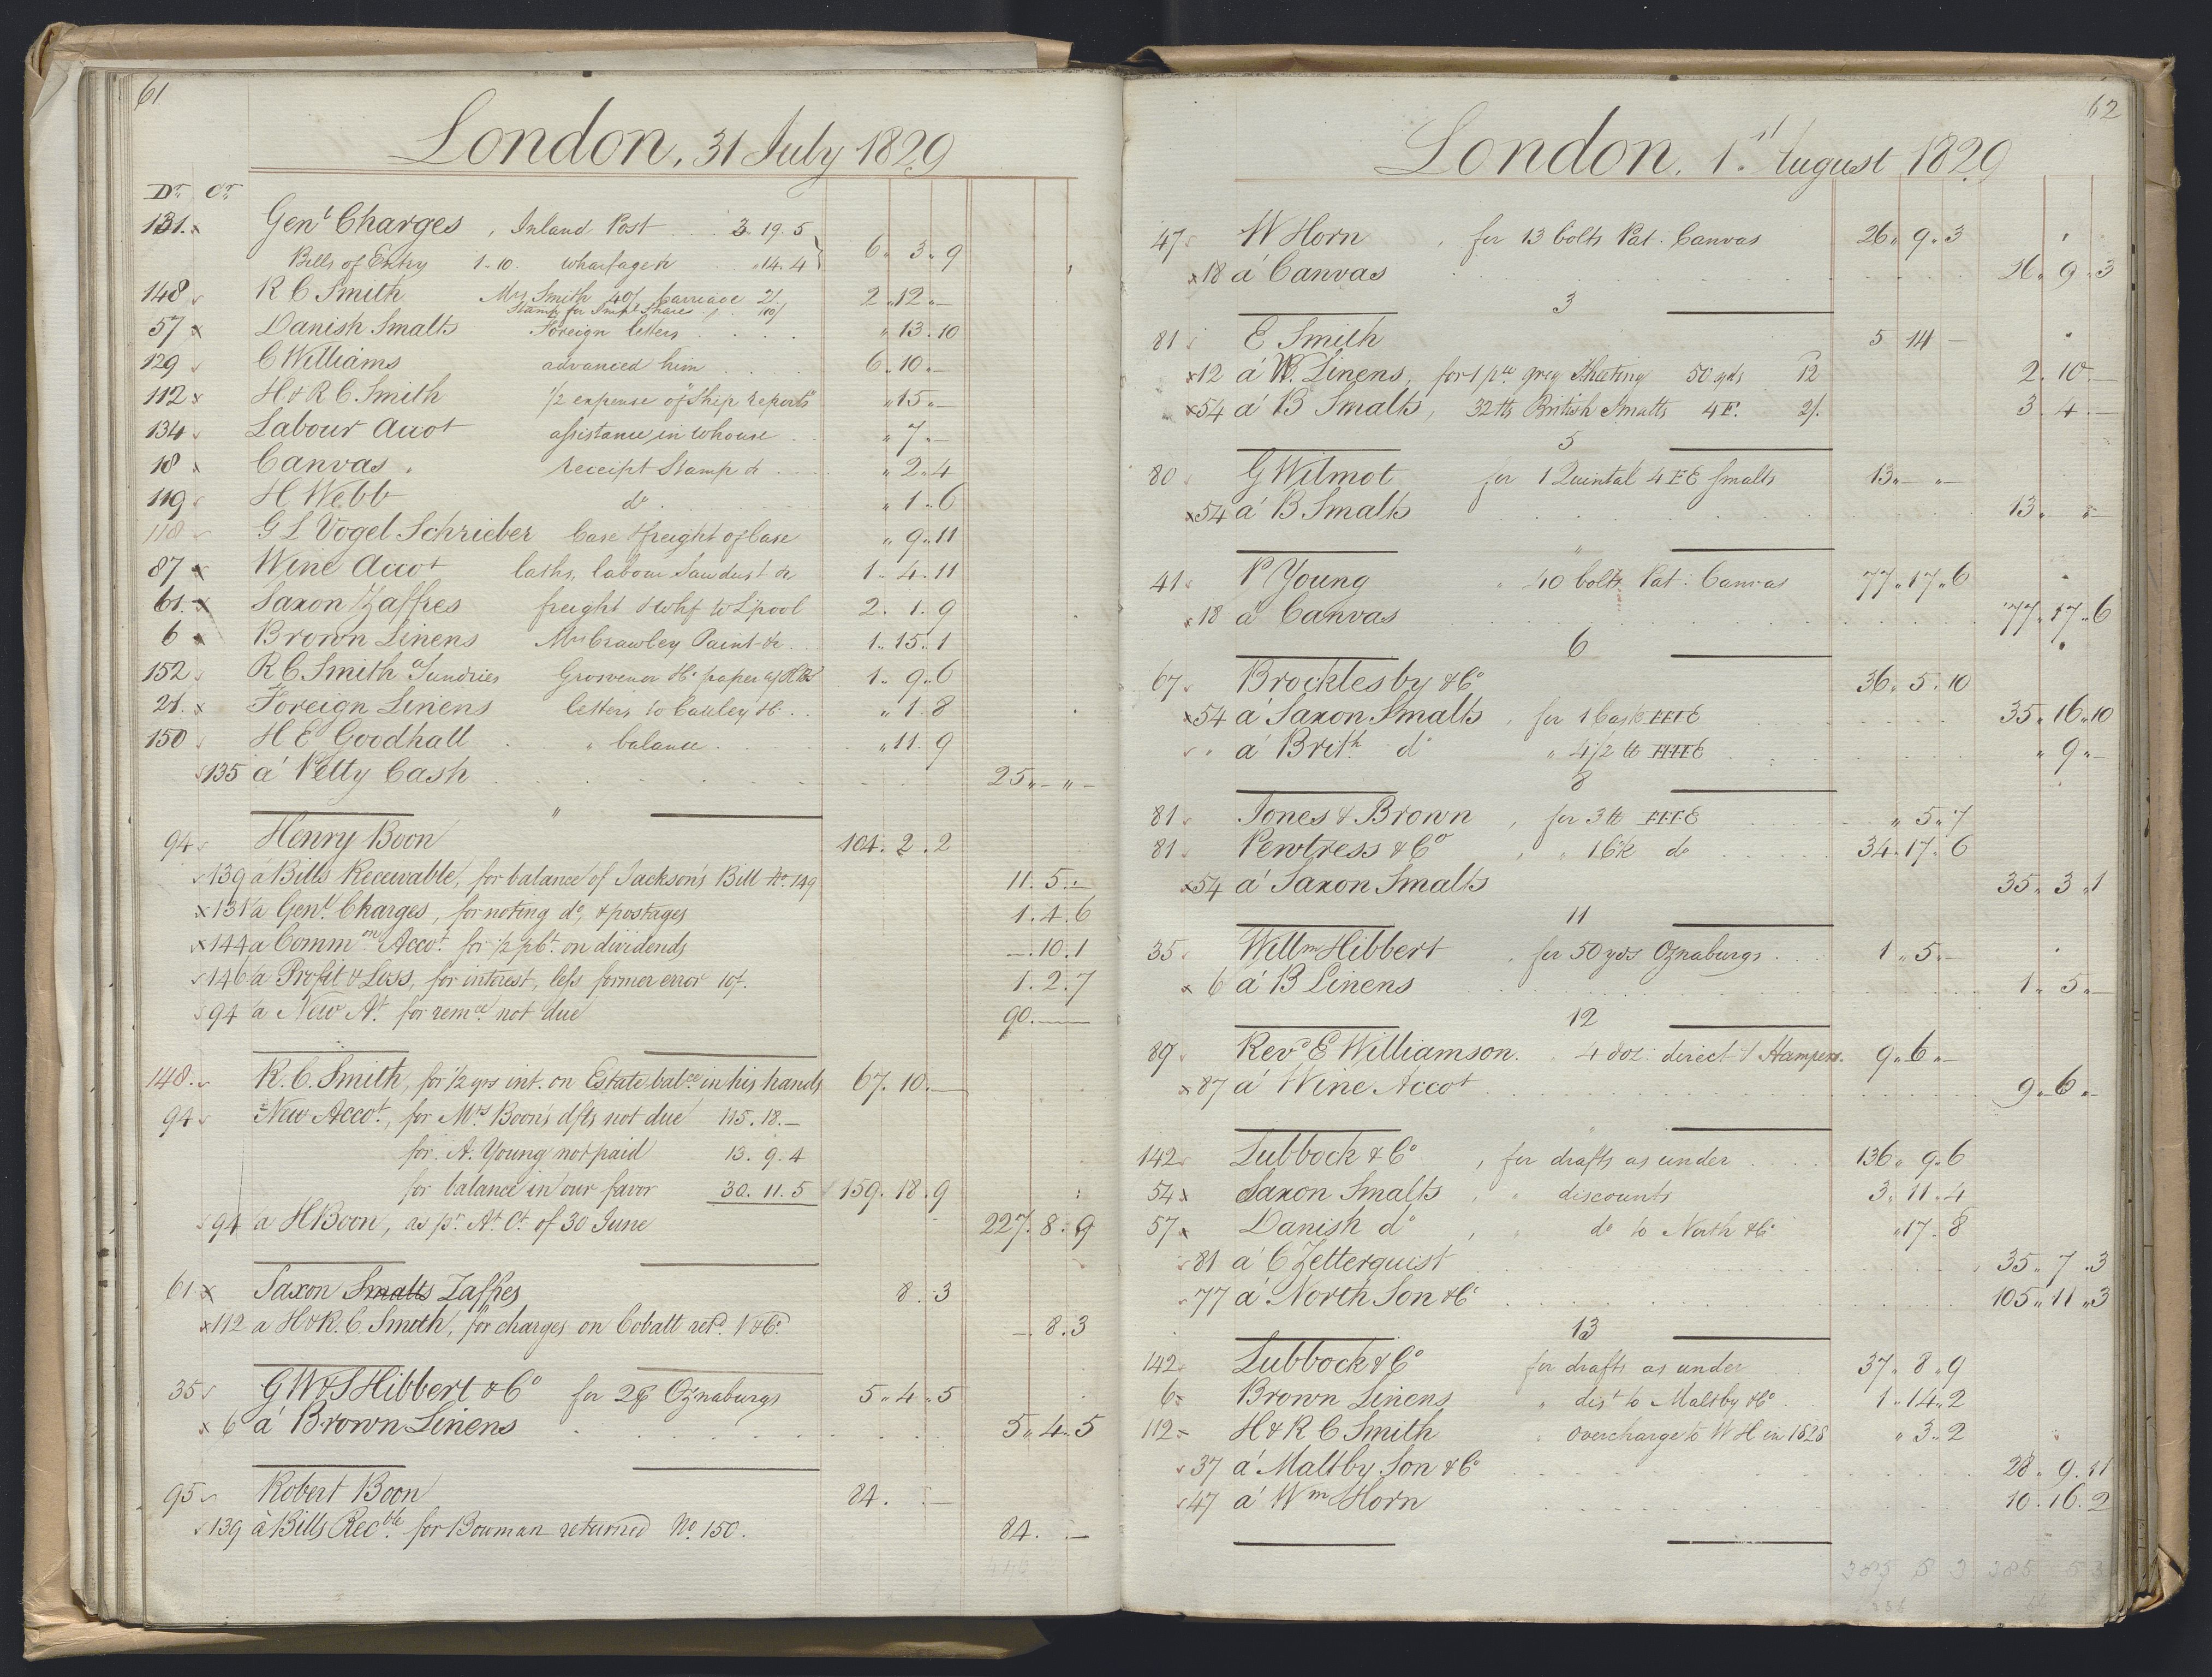 61
London, 31 July 1829
Dr. Cr.
131. x Genl Charges, Inland Post . . . 3. 19. 5
Bills of Entry 1.. 10. wharfage &c .. 14. 4 6.. 3.. 9
148 R C Smith Mrs Smith 40/ carriage 2/. 2.. 12..—
Stamp for Impl Shares . . 10/
57 x Danish Smalts Foreign letters . . . .. 13. 10
129 C Williams advanced him . . . 6.. 10..—
112 x H & R C. Smith 1/2 expense of "Ship reports" .. 15..—
134 Labour Accot assistance in whouse . . .. 7..—
18 x Canvas . receipt Stamp &c . . .. 2.. 4
119 H Webb do . . .. 1.. 6
118 G L Vogel Schrieber Case & freight of Case .. 9.. 11
87 x Wine Accot casks, labour Sawdust &c 1.. 4.. 11
61. x Saxon Zaffres freight & whf to Lpool 2.. 1.. 9
6 x Brown Linens Mrs Crawley Paint &c . . 1.. 15.. 1
152 R C Smith a Sundries Grosvenor &c paper 1.. 9.. 6
21. x Foreign Linens letters to &c . . .. 1.. 8
150 H E Goodhall . " balance . . . .. 11. 9
135 á Petty Cash . . . 25..—..—
"
94 Henry Boon 104. 2. 2
139 á Bills Receivable, for balance of Jackson's Bill No. 149 11. 5. –
x 131 a Genl. Charges, for noting do, & postages 1. 4. 6
x 144 a Common Accot. for 1/2 p Ct. on dividends —. 10. 1
146 a Profit & Loss, for interest, less former error 10/. 1. 2. 7
94 a New At. for remce. not due 90. ——
148. R. C. Smith, for 1/2 yrs int. on Estate balce. in his hands 67. 10. —
94 New Accot., for Mrs Boon's dfts not due 115. 18. –
for. A. Young not paid 13. 9. 4
for balance in our favor 30. 11. 5 159. 18. 9
94 a H Boon, as pr. At. Ct. of 30 June 227. 8. 9
61 x Saxon Smalts Zaffres 8. 3
x 112 a H & R. C. Smith, for charges on Cobalt retd. V & Co. —. 8. 3
35 G W & S Hibbert & Co for 2 Oznaburgs 5.. 4.. 5
x 6 á Brown Linens . . . 5.. 4.. 5
95 Robert Boon 84. . —
139 á Bills Recble. for Bowman returned No. 150. 84. . —
62
London. 1st August 1829
47 W Horn , for 13 bolts Pat. Canvas 26.. 9.. 3
x 18 á Canvas . . . 26.. 9.. 3
3
81 E Smith 5 14 —
x 12 á W. Linens, for 1 pce. grey Sheeting 50 yds 12 2.. 10..—
x 54 á B Smalts, 32 lbs British Smalts 4 F. 2/. 3.. 4..—
5
80 G Wilmot for 1 Quintal 4 FE Smalts 13..— ..—
x 54 á B Smalts . . . 13.. ..—
"
41 P Young " 40 bolts Pat: Canvas 77.. 17.. 6
x 18 á Canvas . . . 77.. 17.. 6
6
67 Brocklesby & Co 36.. 5.. 10
x 54 á Saxon Smalts , for 1 Cask FFFE . . . 35.. 16.. 10
" á Brith. do " 4 1/2 lb FFFFE . . . .. 9..—
8
81 Jones & Brown , for 3 lb FFFE . . . .. 5.. 7
81 Pewtress & Co , " do . . . 34.. 17.. 6
x 54 á Saxon Smalts 35.. 3.. 1
11
35 Willm Hibbert , for 50 yds Oznaburgs . . . 1.. 5..—
x 6 á B Linens . . . 1.. 5..—
12
89 Revd E Williamson. " 4 doz: direct & Hampers. 9.. 6..—
x 87 á Wine Accot . . . 9.. 6..—
"
142 Lubbock & Co , for drafts as under . . . 136.. 9.. 6
54 x Saxon Smalts , " discounts 3.. 11.. 4
57 x Danish do , " do to North & Co .. 17.. 8
81 á C Zetterquist . . . 35.. 7.. 3
77 á North Son & Co . . . 105.. 11.. 3
13
142 Lubbock & Co for drafts as under 37.. 8.. 9
6 x Brown Linens " dist to Maltby & Co . 1.. 14.. 2
112 x H & R C Smith " overcharge to W H in 1828 .. 3.. 2
37 á Maltby Son & Co . . . 28.. 9.. 11
47 á Wm Horn . . . 10.. 16.. 2
385 5 3 385 5 3